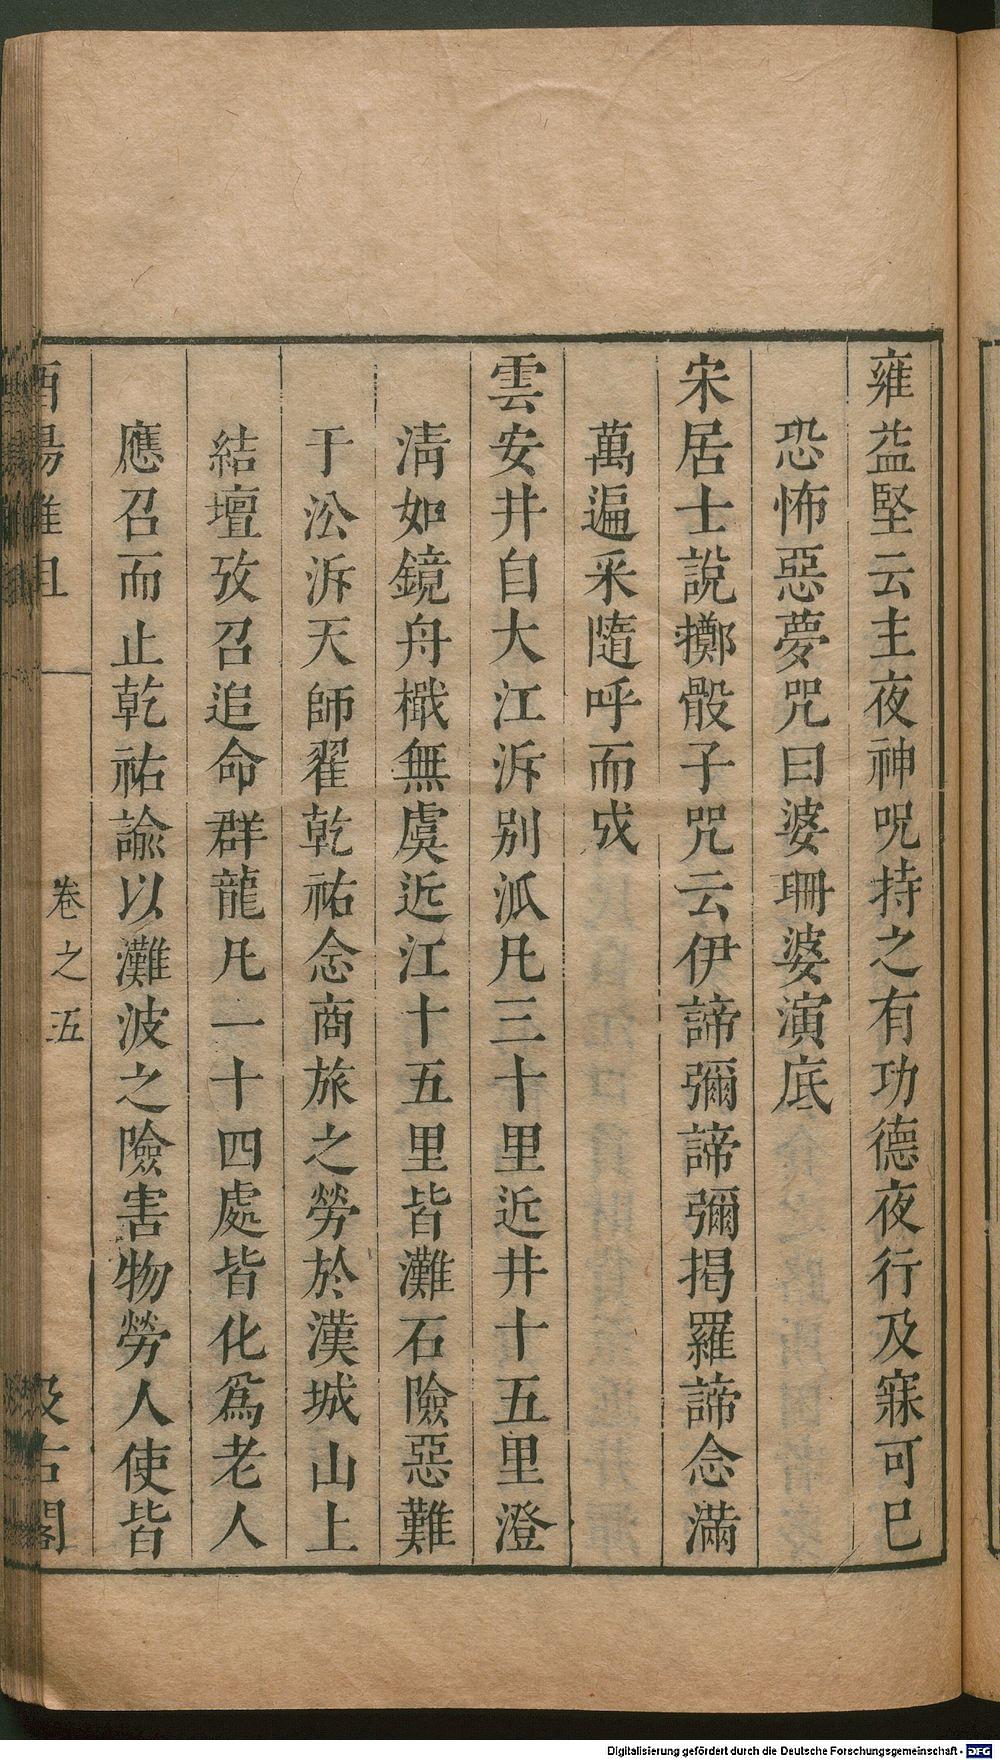 雍益堅云主夜神呪持之有功德夜行及寐可巳
恐怖惡夢咒曰婆珊婆演底
宋居士說擲骰子咒云伊諦彌諦彌掲羅諦念滿
萬遍采隨呼而成
雲安井自大江泝別派凡三十里近井十五里澄
淸如鏡舟檝無虞近江十五里皆灘石險惡難
于㳂泝天師翟乾祐念商旅之勞於漢城山上
結壇攷召追命群龍凡一十四處皆化爲老人
應召而止乾祐諭以灘波之險害物勞人使皆
酉陽雜俎
卷之五
汲古閣
Digitalisierung gefördert durch die Deutsche Forschungsgemeinschaft - DFG